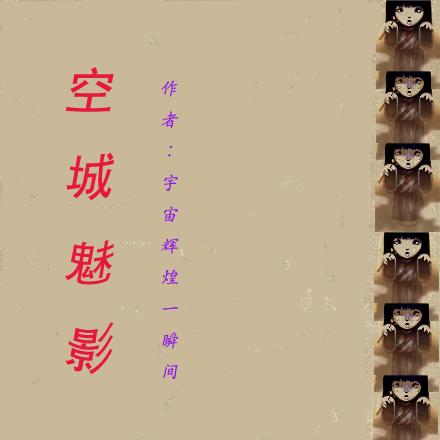 空城魅影
作者：宇宙辉煌一瞬间